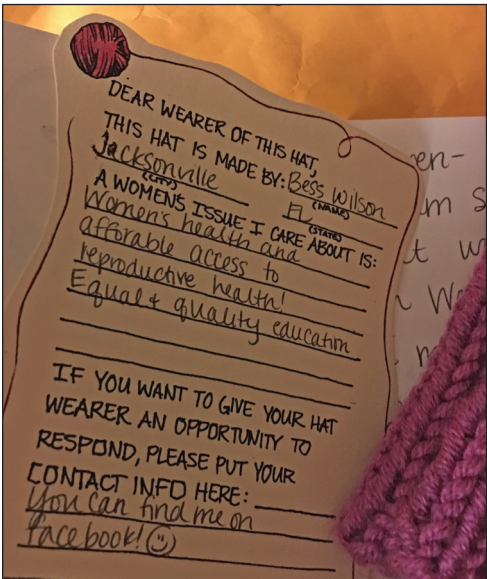 DEAR WEARER OF THIS HAT,
THIS HAT IS MADE BY: Bess Wilson
(NAME)
Jacksonville FL
(CITY) (STATE)
A WOMEN'S ISSUE I CARE ABOUT IS:
Women's health and
afforable access to
reproductive health!
Equal & quality education
IF YOU WANT TO GIVE YOUR HAT
WEARER AN OPPORTUNITY TO
RESPOND, PLEASE PUT YOUR
CONTACT INFO HERE:
You can find me on
facebook! ☺
en-
m s
t w
We